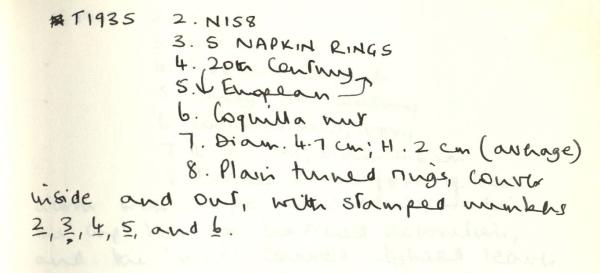 *T1935 2. N158
3. 5 NAPKIN RINGS
4. 20th Century
5. European
6. Coquilla nut
7. Diam. 4.7 cm; H. 2 cm (average)
8. Plain turned rings, convex
inside and out, with stamped numbers
2, 3, 4, 5, and 6.